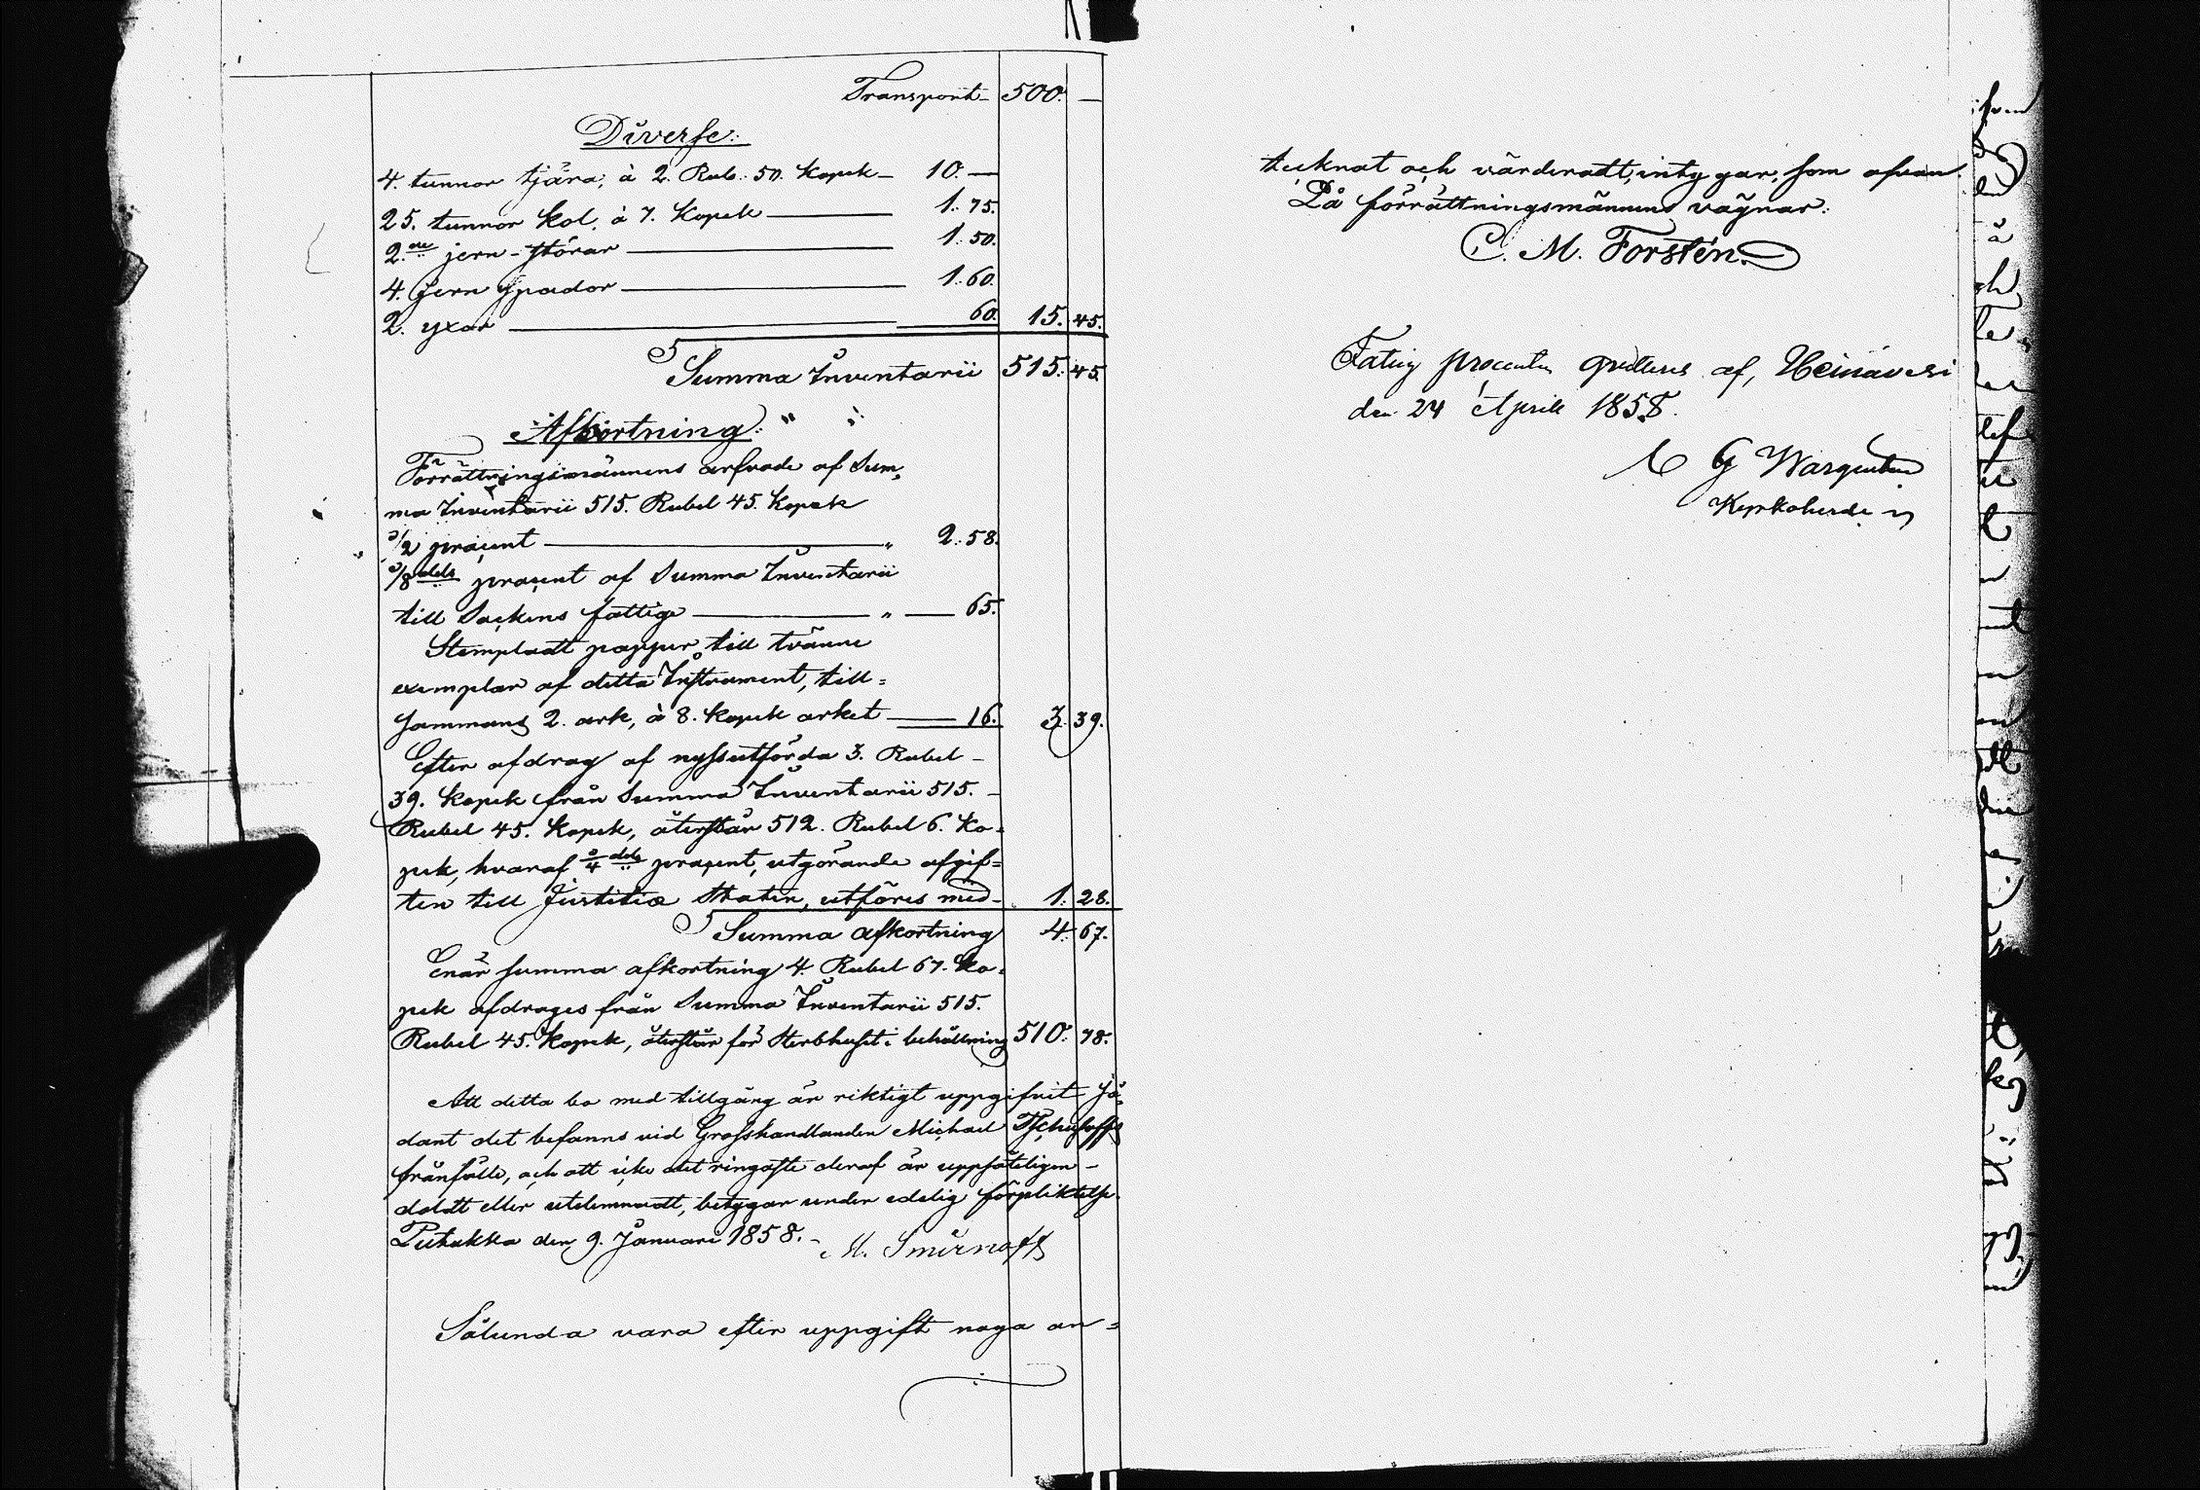 Transport 500. —
Diverse:
4. tunnor tjära, à 2. Rub. 50. Kopek — 10. —
25. tunnor kol, à 7. Kopek — 1. 75.
2.ne jern-störar — 1. 50.
4. jern spador — 1. 60.
2. yxor — 60. 15. 45.
Summa Inventarii 515. 45.
Afkortning:
Förrättningsmännens arfvode af Sum-
ma Inventarii 515. Rubel 45. Kopek
1/2 procent — " 2. 58.
1/8 dels procent af Summa Inventarii
till Sockens fattige — " — 65.
Stempladt papper till tvänne
exemplar af detta Instrument, till-
sammans 2. ark, à 8. Kopek arket — 16. 3. 39.
Efter afdrag af nyssutförda 3. Rubel
39. Kopek från Summa Inventarii 515.
Rubel 45. Kopek, återstår 512. Rubel 6. Ko-
pek, hvaraf 1/4 dels procent, utgörande afgif-
ten till Justitiæ Staten, utföres med 1. 28.
Summa afkortning 4. 67.
Enär summa afkortning 4. Rubel 67. Ko-
pek afdrages från Summa Inventarii 515.
Rubel 45. Kopek, återstår för Sterbhuset i behållning 510. 78.
Att detta bo med tillgång är riktigt uppgifvit så-
dant det befanns vid Grosshandlanden Michael
frånfälle, och att icke det ringaste deraf är uppsåteligen
doldt eller utelemnadt, betygar under edelig förpliktelse.
den 9. Januari 1858. M. Smirnoff
Sålunda vara efter uppgift noga an-
tecknat och värderadt, intygar, som ofvan.
På förrättningsmännens vägnar:
C. M. Forstén.
Fattig procenten qvitteras af, Heinävesi
den 24 April 1858.
G Wargentin
Kyrkoherde